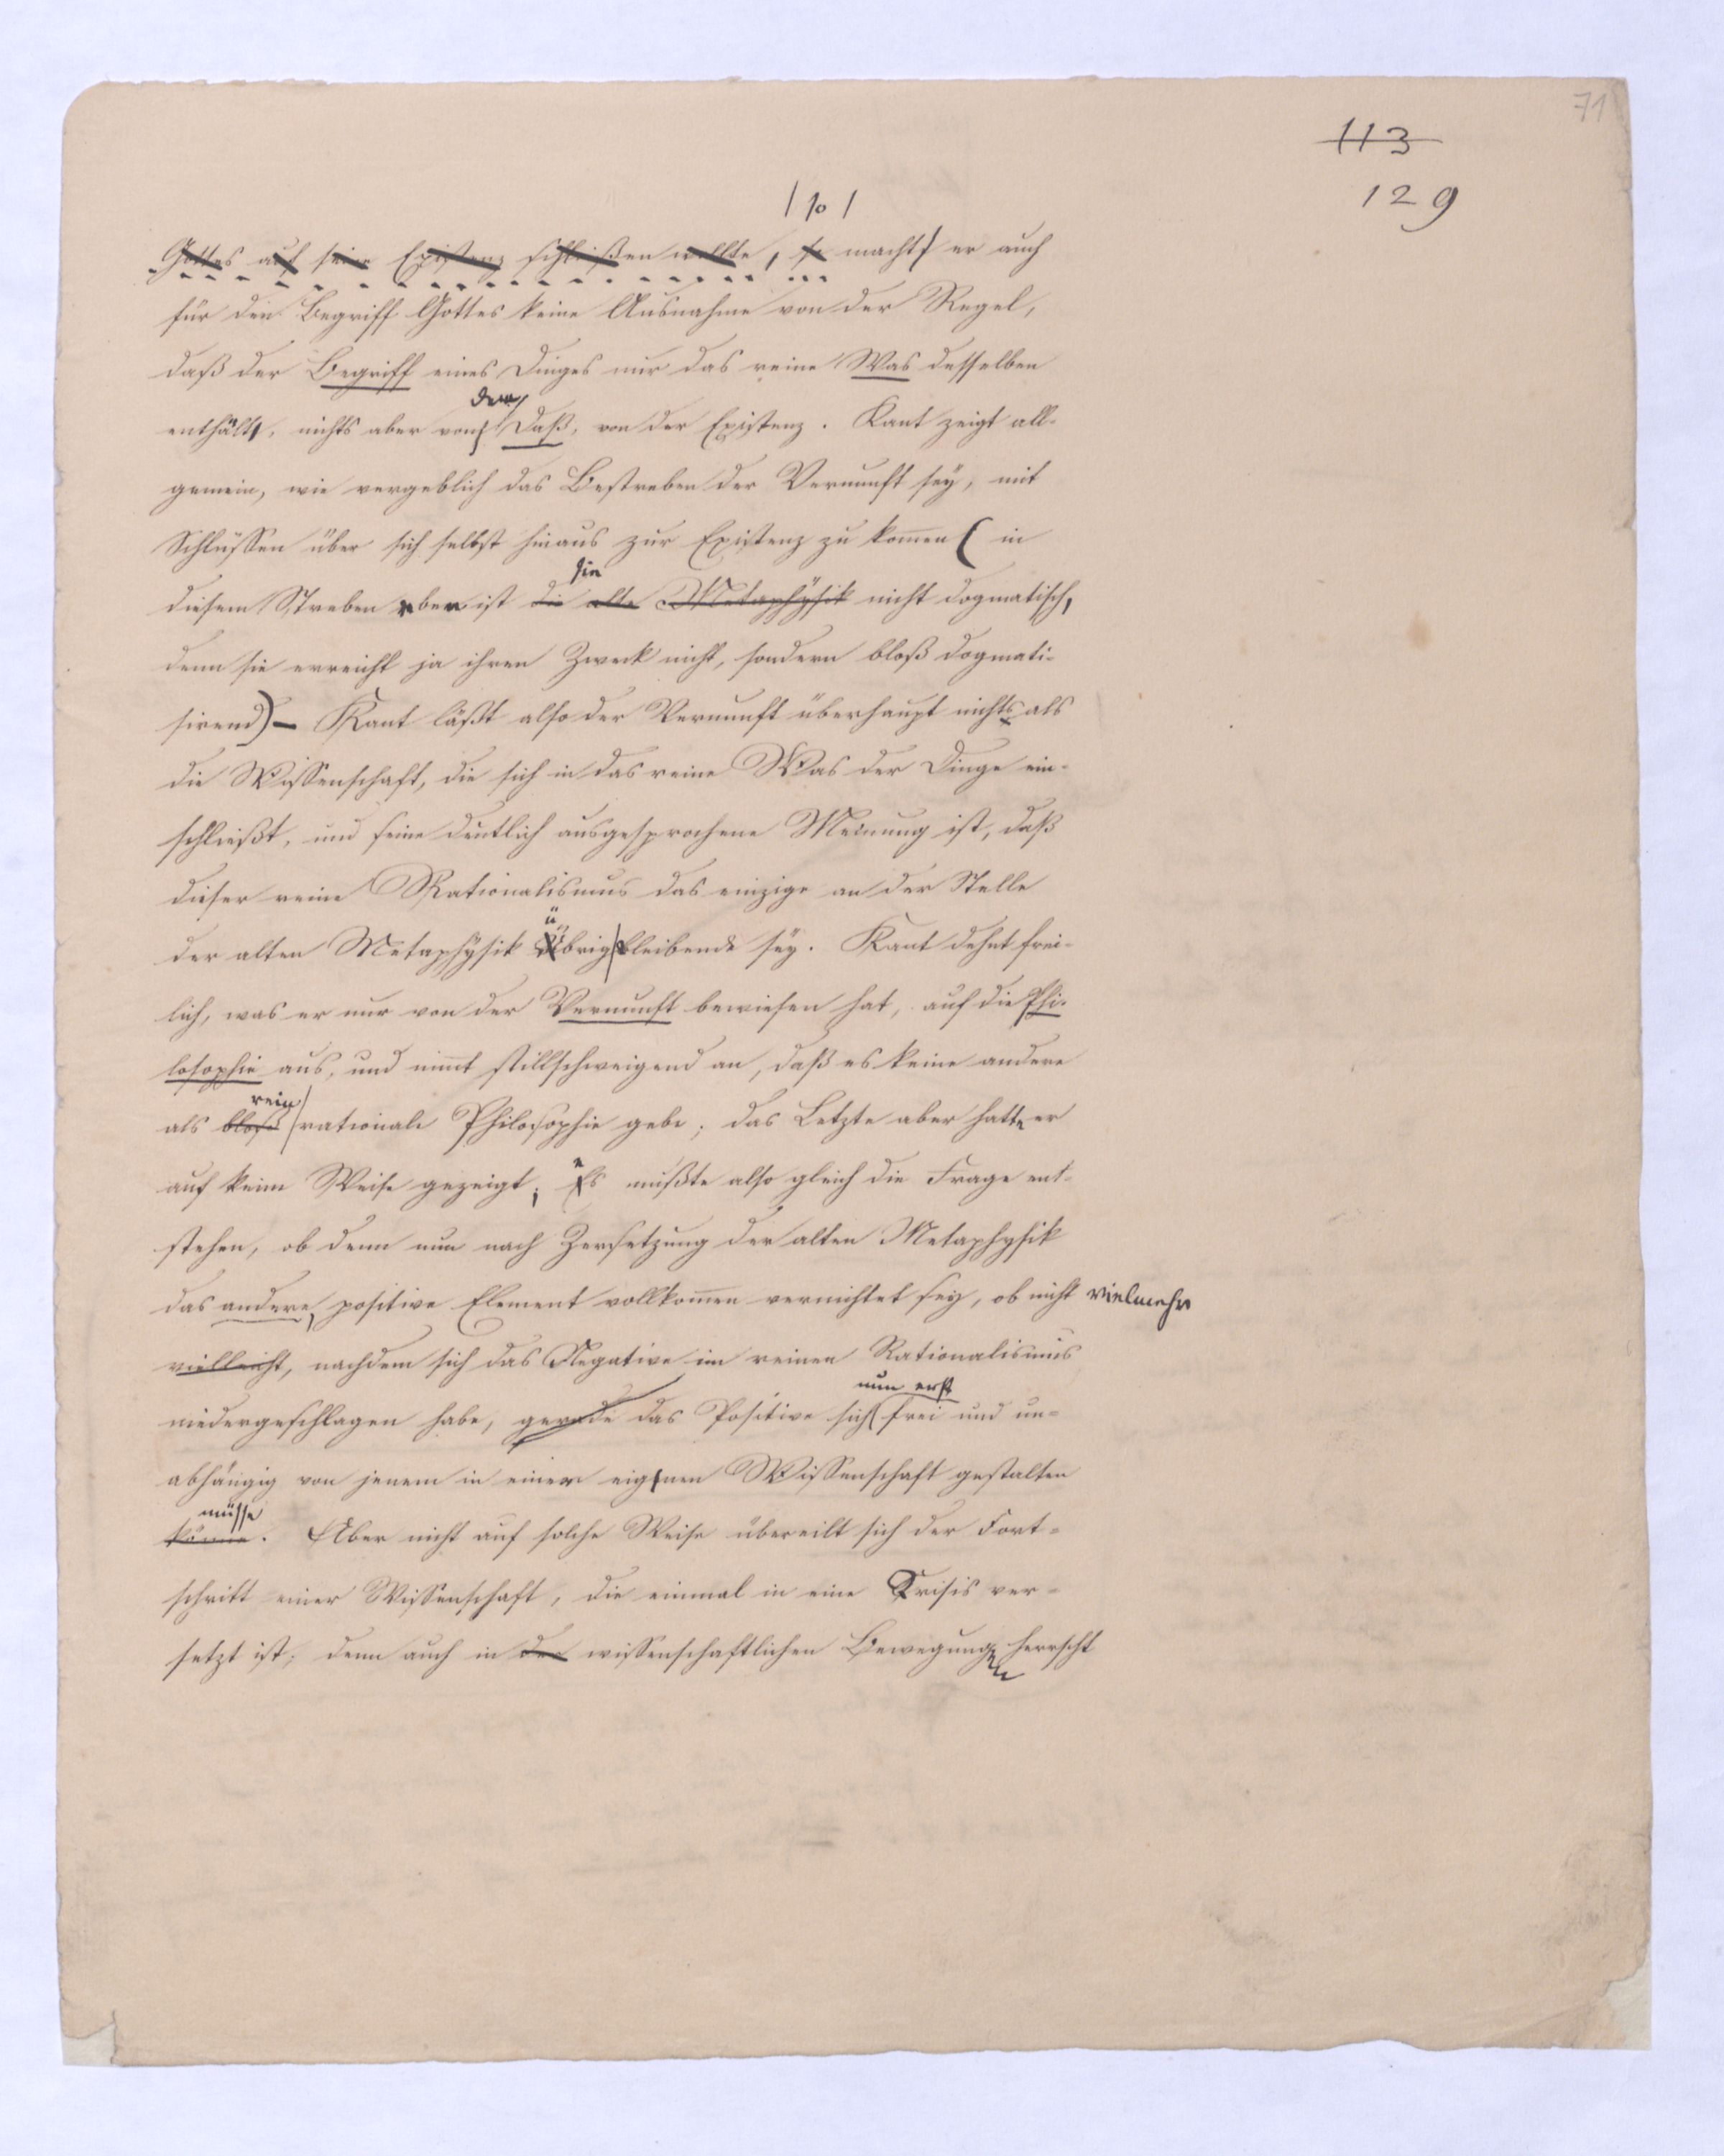 71
113
129
/ so /
Gottes auf seine Existenz schließen wollte, so macht er auch
für den Begriff Gottes keine Ausnahme von der Regel,
daß der Begriff eines Dinges nur das reine Was desselben
dem
enthält, nichts aber von Daß, von der Existenz. Kant zeigt all-
gemein, wie vergeblich das Bestreben der Vernunft sey, mit
Schlüssen über sich selbst hinaus zur Existenz zu kom̄en ( in
sie
diesem Streben aber ist die alte Metaphysik nicht dogmatisch,
denn sie erreicht ja ihren Zweck nicht, sondern bloß dogmati-
sirend) – Kant läßt also der Vernunft überhaupt nichts als
die Wissenschaft, die sich in das reine Was der Dinge ein-
schließt, und seine deutlich ausgesprochene Meinung ist, daß
dieser reine Rationalismus das einzige an der Stelle
ü
der alten Metaphysik Übrig bleibende sey. Kant dehnt frei-
lich, was er nur von der Vernunft bewiesen hat, auf die Phi-
losophie aus, und nim̄t stillschweigend an, daß es keine andere
rein
als bloß rationale Philosophie gebe; das Letzte aber hatte er
auf keine Weise gezeigt; Es mußte also gleich die Frage ent-
stehen, ob denn nun nach Zersetzung der alten Metaphysik
das andere, positive Element vollkom̄en vernichtet sey, ob nicht vielmehr
vielleicht, nachdem sich das Negative im reinen Rationalismus
nun erst
niedergeschlagen habe, gerade das Positive sich frei und un-
abhängig von jenem in einer eignen Wissenschaft gestalten
müsse
könne. Aber nicht auf solche Weise übereilt sich der Fort-
schritt einer Wissenschaft, die einmal in eine Krisis ver-
setzt ist; denn auch in der wissenschaftlichen Bewegungen herrscht